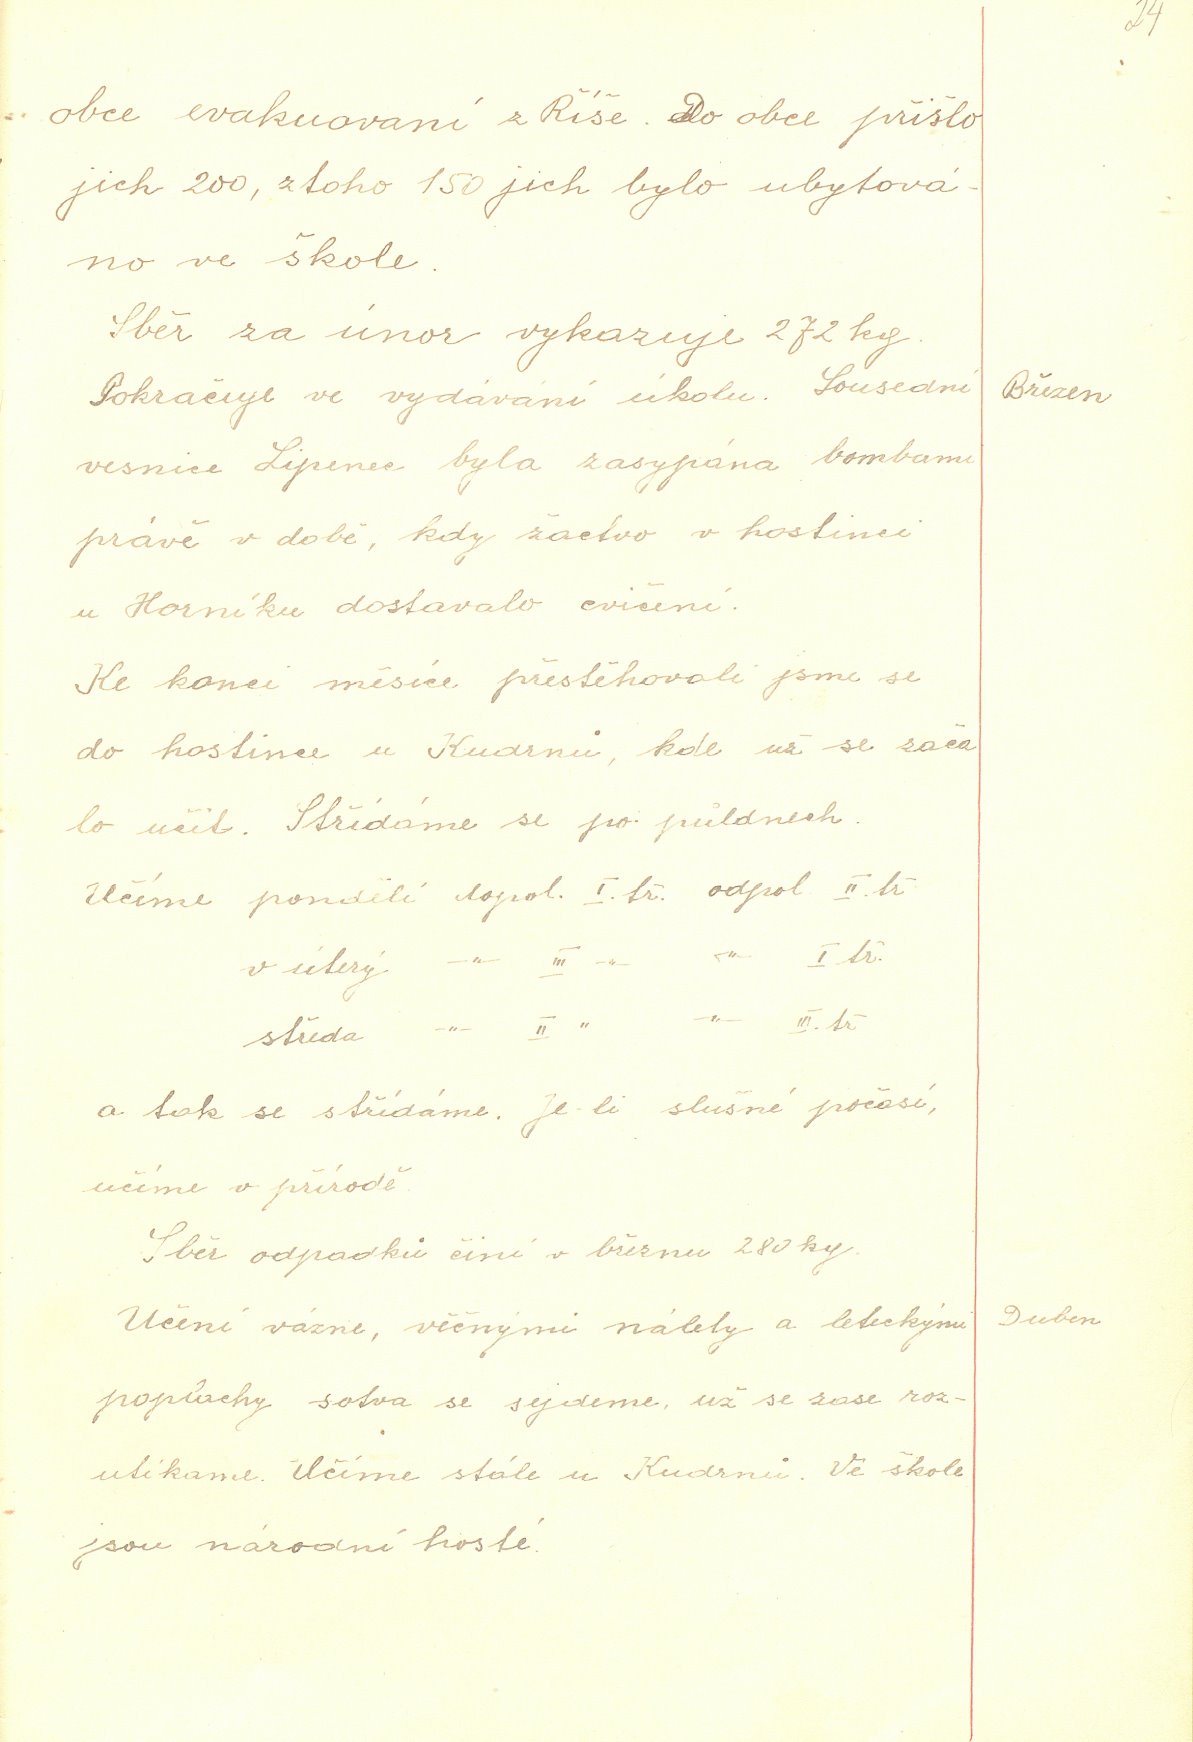 24
obce evakuovaní z Říše. Do obce přišlo
jich 200, z toho 150 jich bylo ubytová-
no ve škole.
Sběr za únor vykazuje 272 kg.
Pokračuje ve vydávání úkolu. Sousední Březen
vesnice Lipenec byla zasypána bombami
právě v době, kdy žactvo v hostinci
u Horníku dostavalo cvičení.
Ke konci měsíce přestěhovali jsme se
do hostince u Kudrnů, kde už se zača
lo učit. Střídáme se po půldnech.
Učíme pondělí dopol. I. tř. odpol. II. tř
v úterý -"- III -"- -"- I tř.
středa -"- II " -"- III. tř
a tak se střídáme. Je-li slušné počasí,
učíme v přírodě.
Sběr odpadků činí v březnu 280 kg.
Učení vázne, věčnými nálety a leteckými Duben
poplachy sotva se sejdeme, už se zase roz-
utíkame. Učíme stále u Kudrnů. Ve škole
jsou národní hosté.